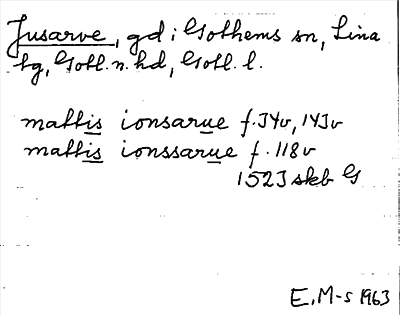 Jusarve, gd i Gothems sn, Lina
tg, Gotl. n. hd, Gotl. l.
mattis ionsarue f. 34v, 143v
mattis ionssarue f. 118v
1523 skb G
E. M-s 1963